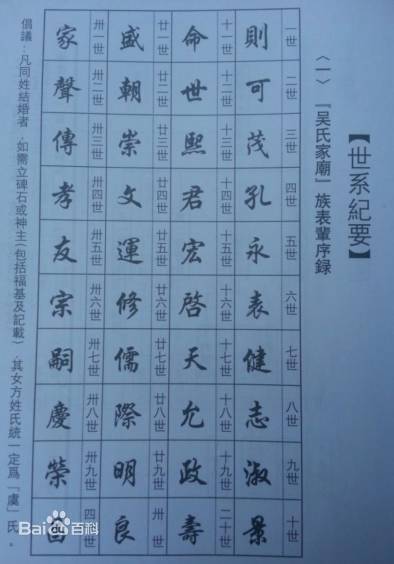 【世系紀要】
〈一〉『吴氏家廟』族表輩序録
一世 二世 三世 四世 五世 六世 七世 八世 九世 十世
則 可 茂 孔 永 表 健 志 淑 景
十一世 十二世 十三世 十四世 十五世 十六世 十七世 十八世 十九世 二十世
命 世 熙 君 宏 啓 天 允 政 壽
廿一世 廿二世 廿三世 廿四世 廿五世 廿六世 廿七世 廿八世 廿九世 卅世
盛 朝 崇 文 運 修 儒 際 明 良
卅一世 卅二世 卅三世 卅四世 卅五世 卅六世 卅七世 卅八世 卅九世 四世
家 聲 傳 孝 友 宗 嗣 慶 榮
倡議：凡同姓結婚者，如需立碑石或神主（包括福基及記載），其女方姓氏統一定爲『虞』氏。
Bai百科